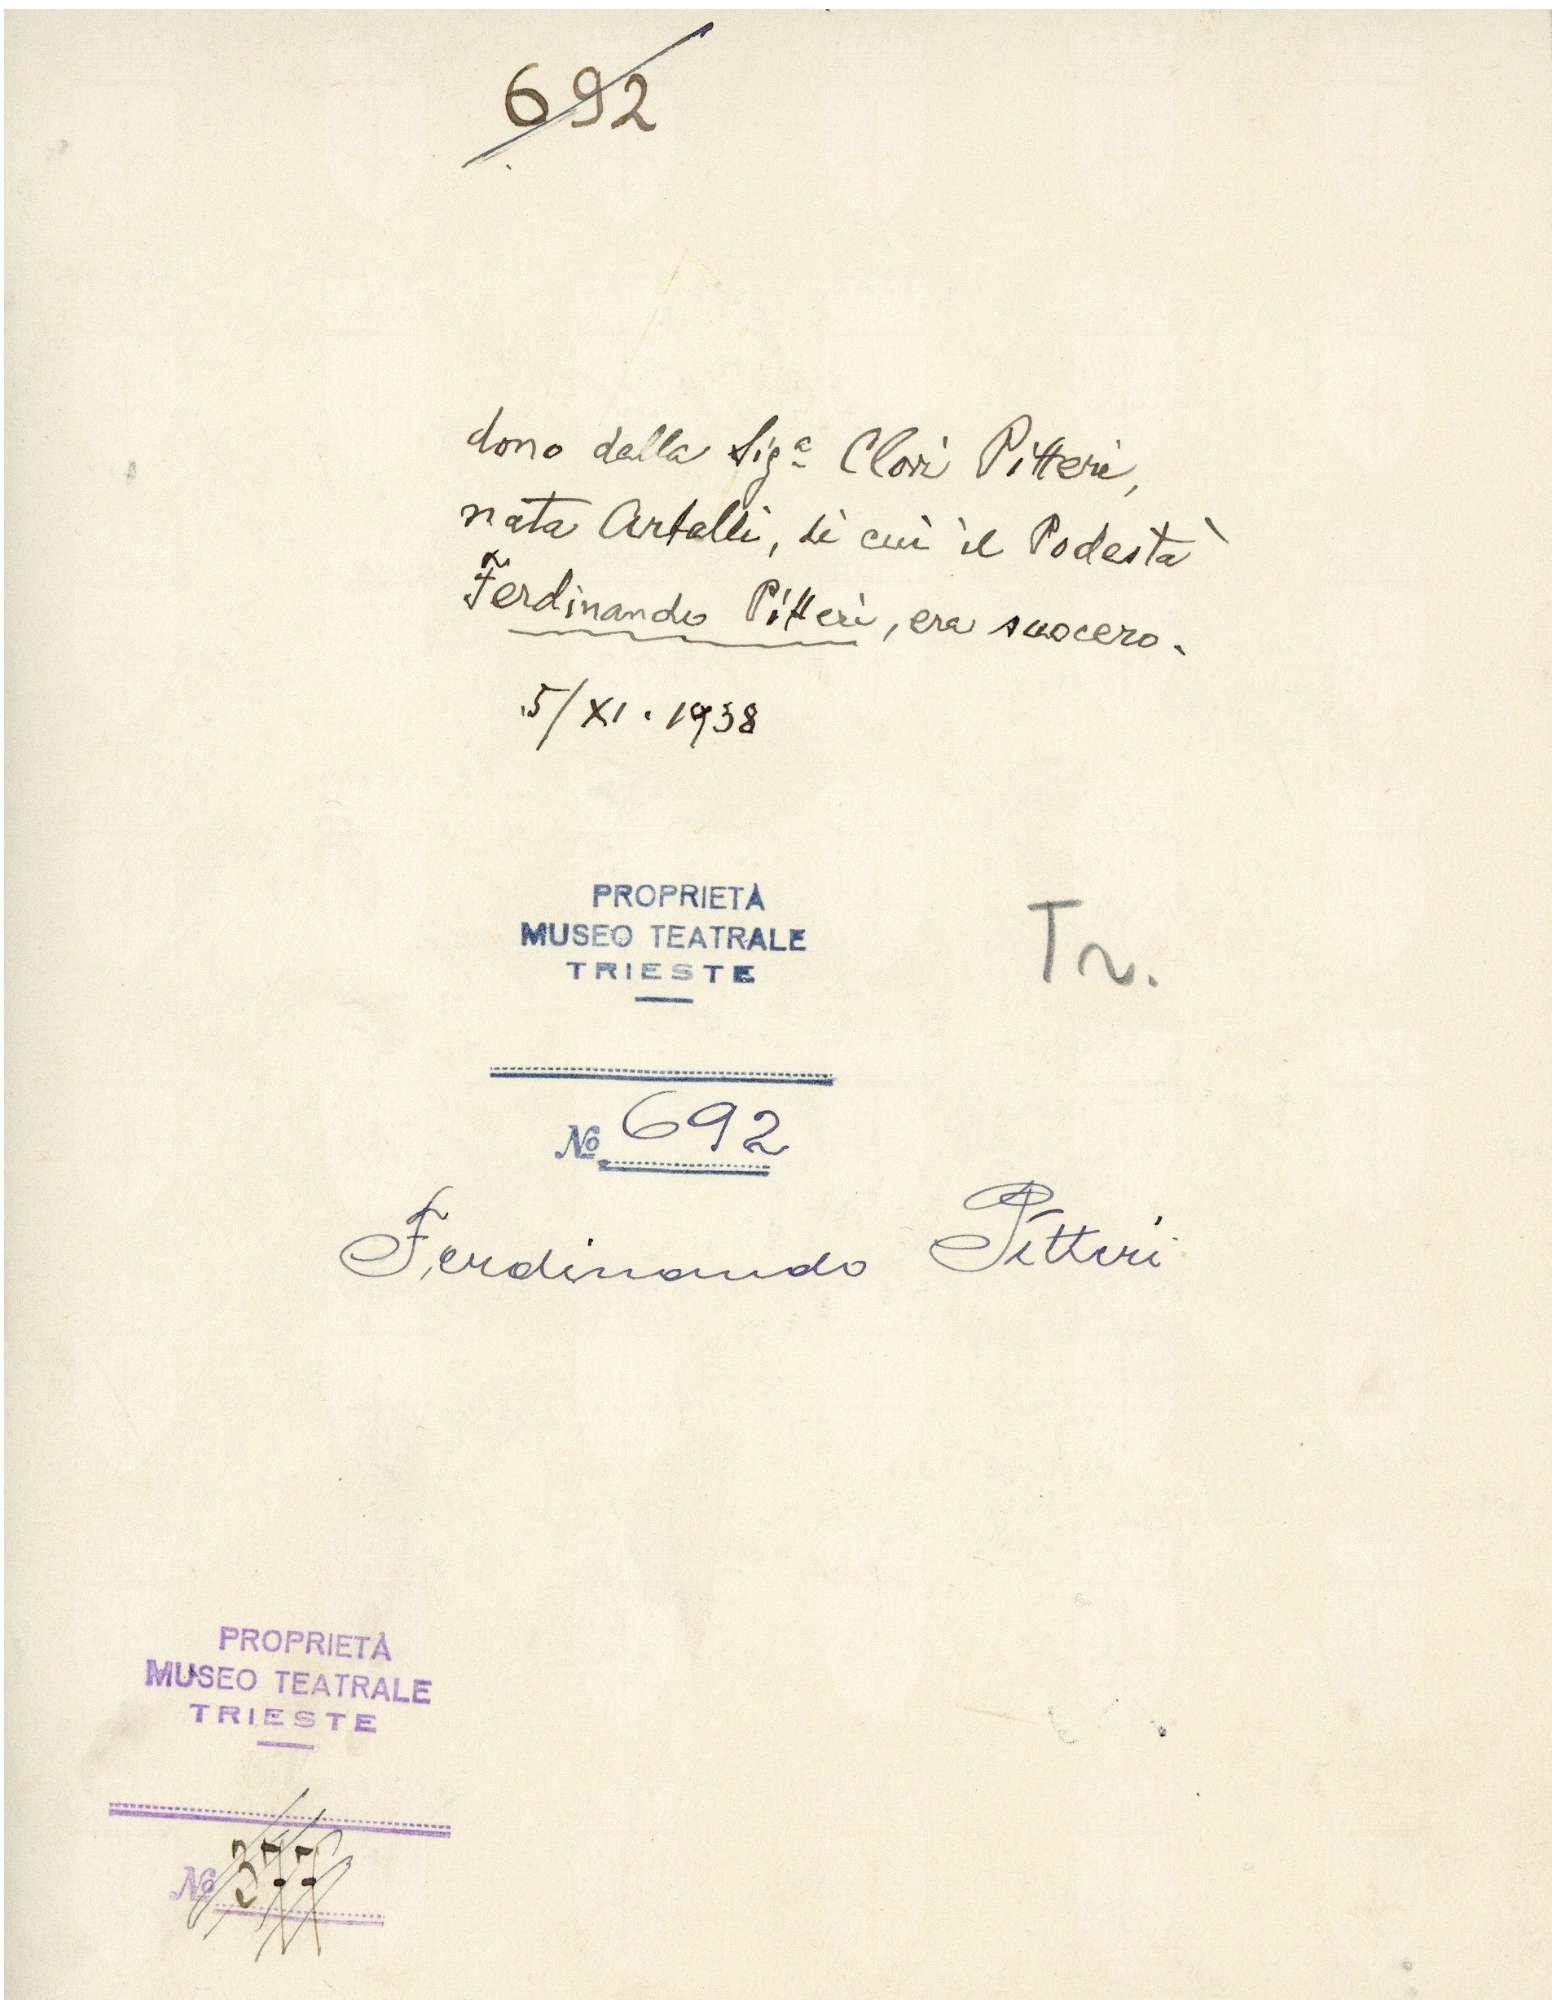 692
dono della Sigª Clori Pitteri,
nata Artelli, di cui il Podestà
Ferdinando Pitteri, era suocero.
5/XI.1938
PROPRIETÀ
MUSEO TEATRALE
TRIESTE
Tr.
No 692
Ferdinando Pitteri
PROPRIETÀ
MUSEO TEATRALE
TRIESTE
No 377